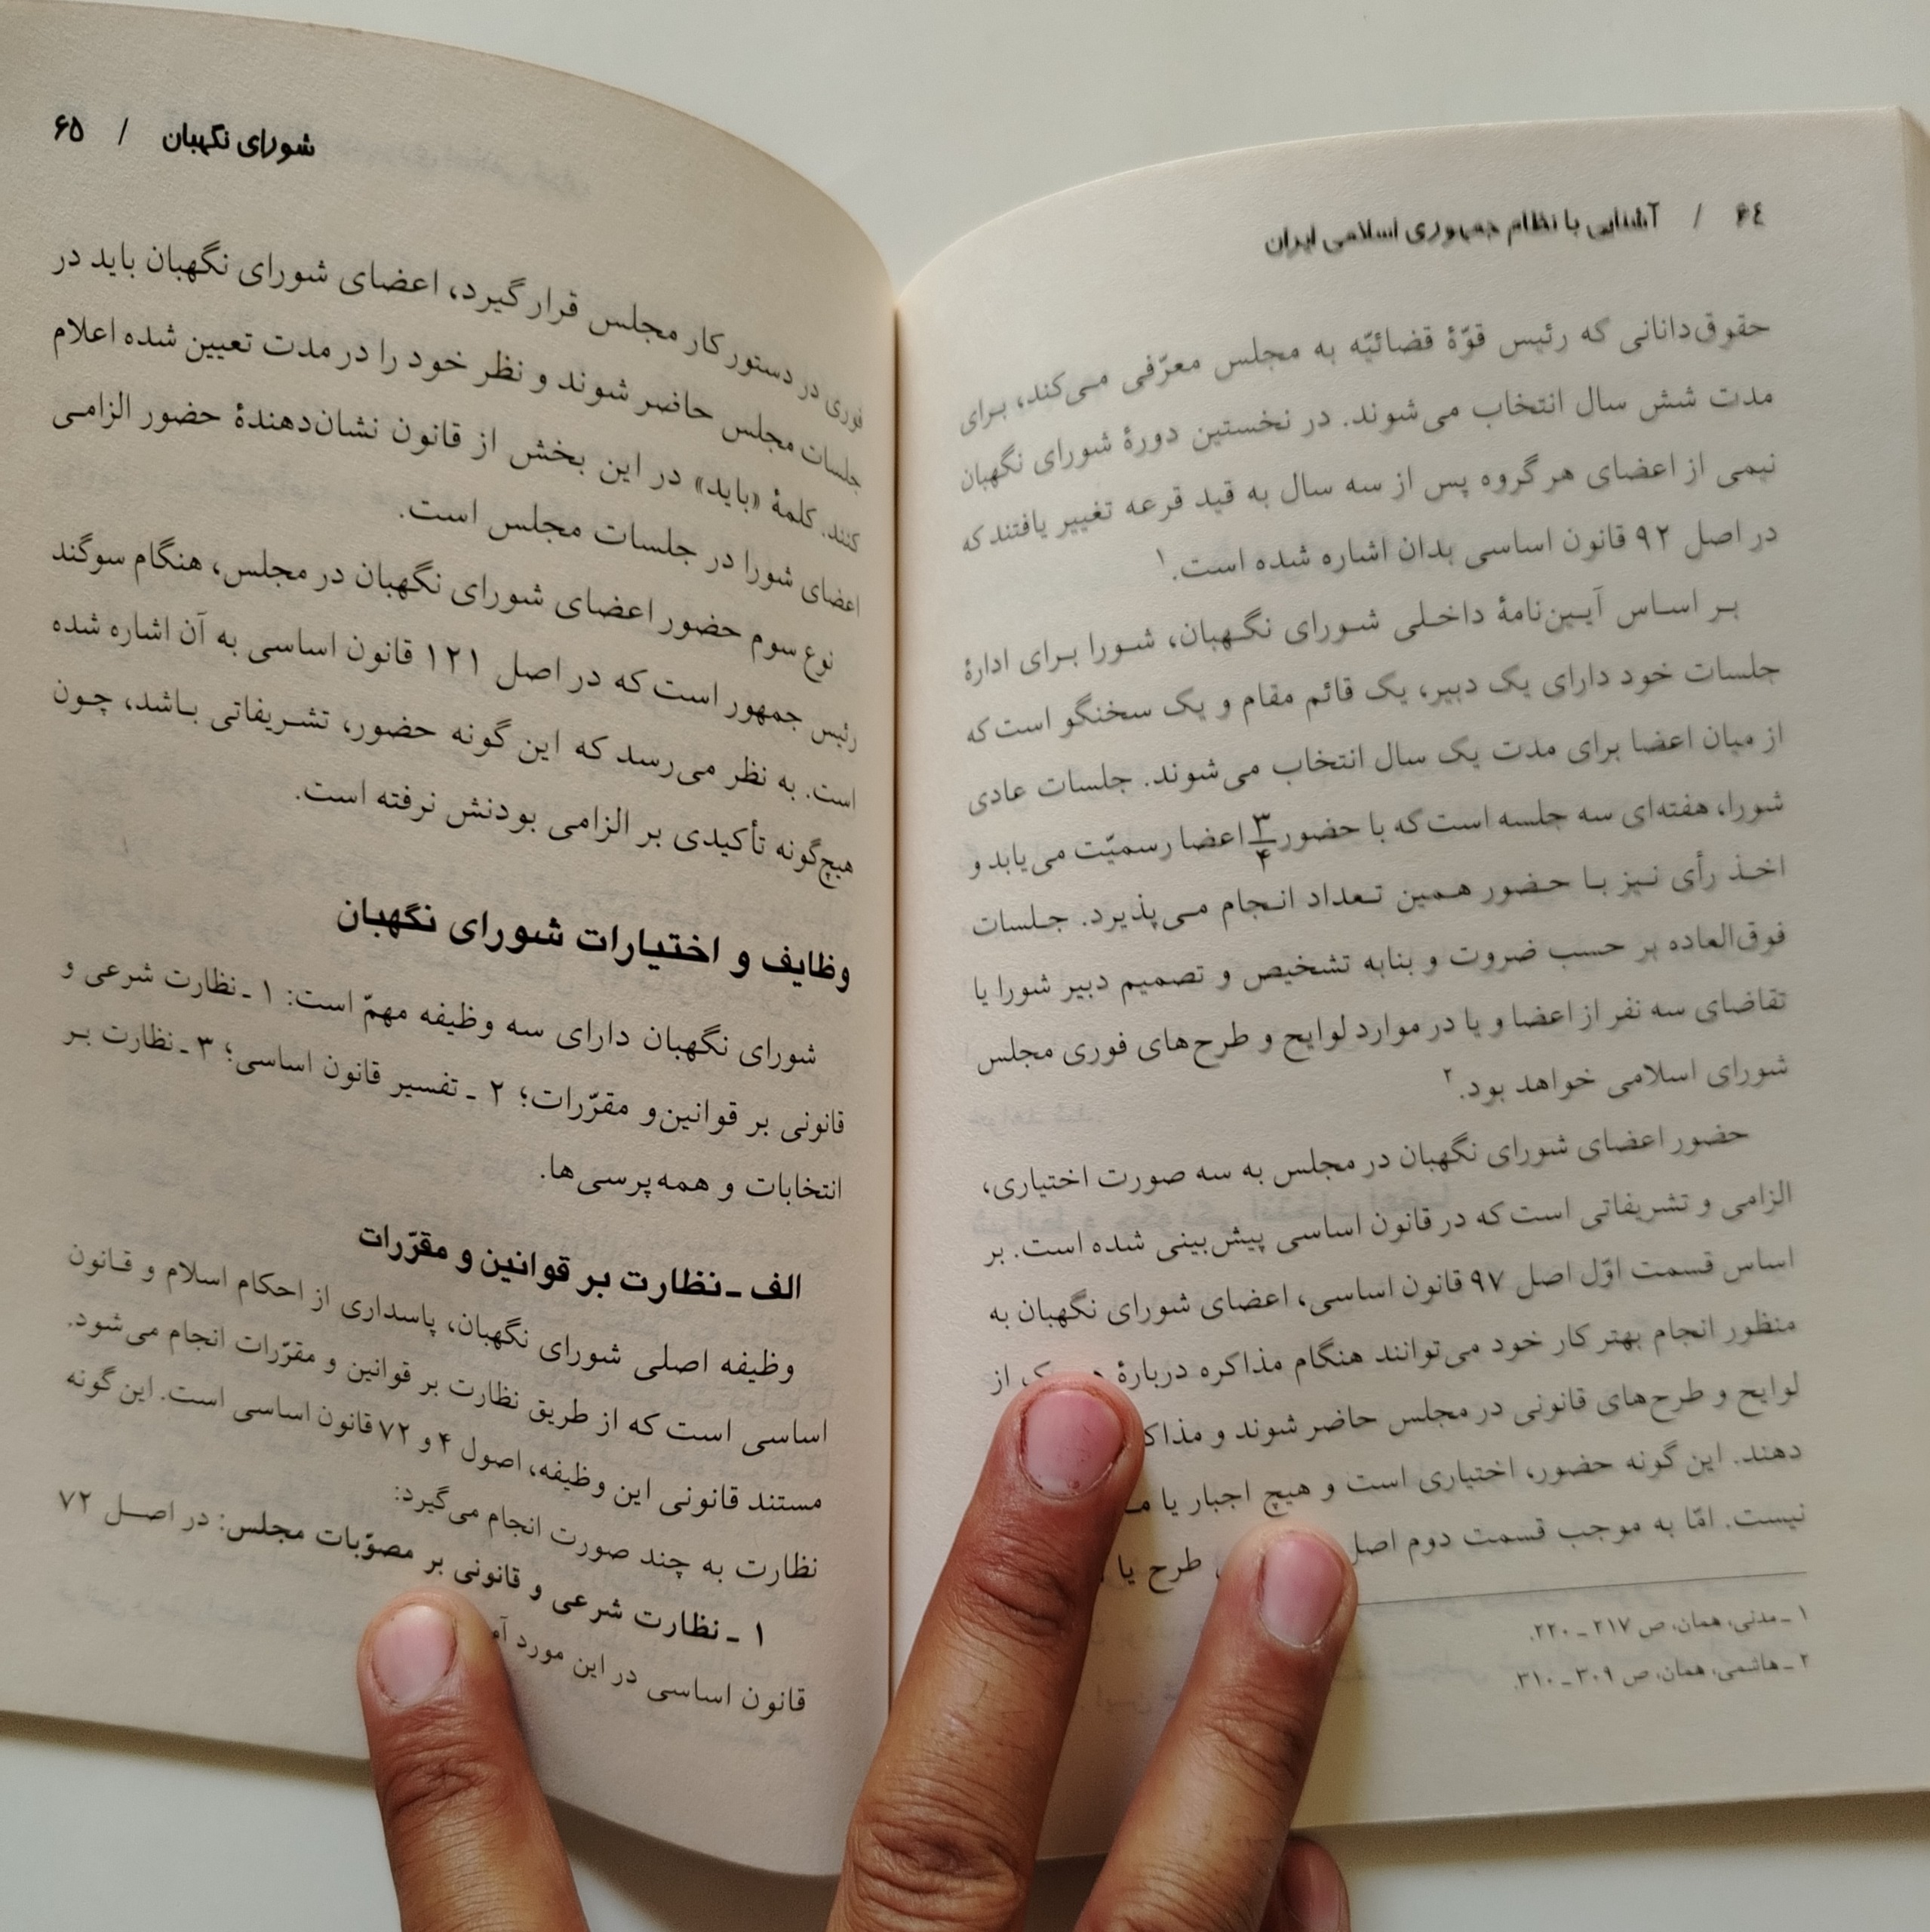 ۶۴ / آشنایی با نظام جمهوری اسلامی ایران
حقوق‌دانانی که رئیس قوّهٔ قضائیّه به مجلس معرّفی می‌کند، برای
مدت شش سال انتخاب می‌شوند. در نخستین دورهٔ شورای نگهبان
نیمی از اعضای هر گروه پس از سه سال به قید قرعه تغییر یافتند که
در اصل ۹۲ قانون اساسی بدان اشاره شده است.۱
بر اساس آیین‌نامهٔ داخلی شورای نگهبان، شورا برای ادارهٔ
جلسات خود دارای یک دبیر، یک قائم مقام و یک سخنگو است که
از میان اعضا برای مدت یک سال انتخاب می‌شوند. جلسات عادی
شورا، هفته‌ای سه جلسه است که با حضور ۳/۴ اعضا رسمیّت می‌یابد و
اخذ رأی نیز با حضور همین تعداد انجام می‌پذیرد. جلسات
فوق‌العاده بر حسب ضروت و بنابه تشخیص و تصمیم دبیر شورا یا
تقاضای سه نفر از اعضا و یا در موارد لوایح و طرح‌های فوری مجلس
شورای اسلامی خواهد بود.۲
حضور اعضای شورای نگهبان در مجلس به سه صورت اختیاری،
الزامی و تشریفاتی است که در قانون اساسی پیش‌بینی شده است. بر
اساس قسمت اوّل اصل ۹۷ قانون اساسی، اعضای شورای نگهبان به
منظور انجام بهتر کار خود می‌توانند هنگام مذاکره دربارهٔ از
لوایح و طرح‌های قانونی در مجلس حاضر شوند و
دهند. این گونه حضور، اختیاری است و هیچ اجبار یا
نیست. امّا به موجب قسمت دوم اصل طرح یا
۱ ـ مدنی، همان، ص ۲۱۷ ـ ۲۲۰.
۲ ـ هاشمی، همان، ص ۳۰۹ ـ ۳۱۰.
شورای نگهبان / ۶۵
فوری در دستور کار مجلس قرار گیرد، اعضای شورای نگهبان باید در
جلسات مجلس حاضر شوند و نظر خود را در مدت تعیین شده اعلام
کنند. کلمهٔ «باید» در این بخش از قانون نشان‌دهندهٔ حضور الزامی
اعضای شورا در جلسات مجلس است.
نوع سوم حضور اعضای شورای نگهبان در مجلس، هنگام سوگند
رئیس جمهور است که در اصل ۱۲۱ قانون اساسی به آن اشاره شده
است. به نظر می‌رسد که این گونه حضور، تشریفاتی باشد، چون
هیچ‌گونه تأکیدی بر الزامی بودنش نرفته است.
وظایف و اختیارات شورای نگهبان
شورای نگهبان دارای سه وظیفه مهمّ است: ۱ ـ نظارت شرعی و
قانونی بر قوانین و مقرّرات؛ ۲ ـ تفسیر قانون اساسی؛ ۳ ـ نظارت بر
انتخابات و همه‌پرسی‌ها.
الف ـ نظارت بر قوانین و مقرّرات
وظیفه اصلی شورای نگهبان، پاسداری از احکام اسلام و قانون
اساسی است که از طریق نظارت بر قوانین و مقرّرات انجام می‌شود.
مستند قانونی این وظیفه، اصول ۴ و ۷۲ قانون اساسی است. این گونه
نظارت به چند صورت انجام می‌گیرد:
۱ ـ نظارت شرعی و قانونی بر مصوّبات مجلس: در اصل ۷۲
قانون اساسی در این مورد